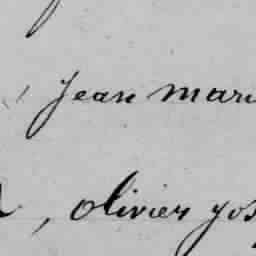 Jean mari
, olivier yos